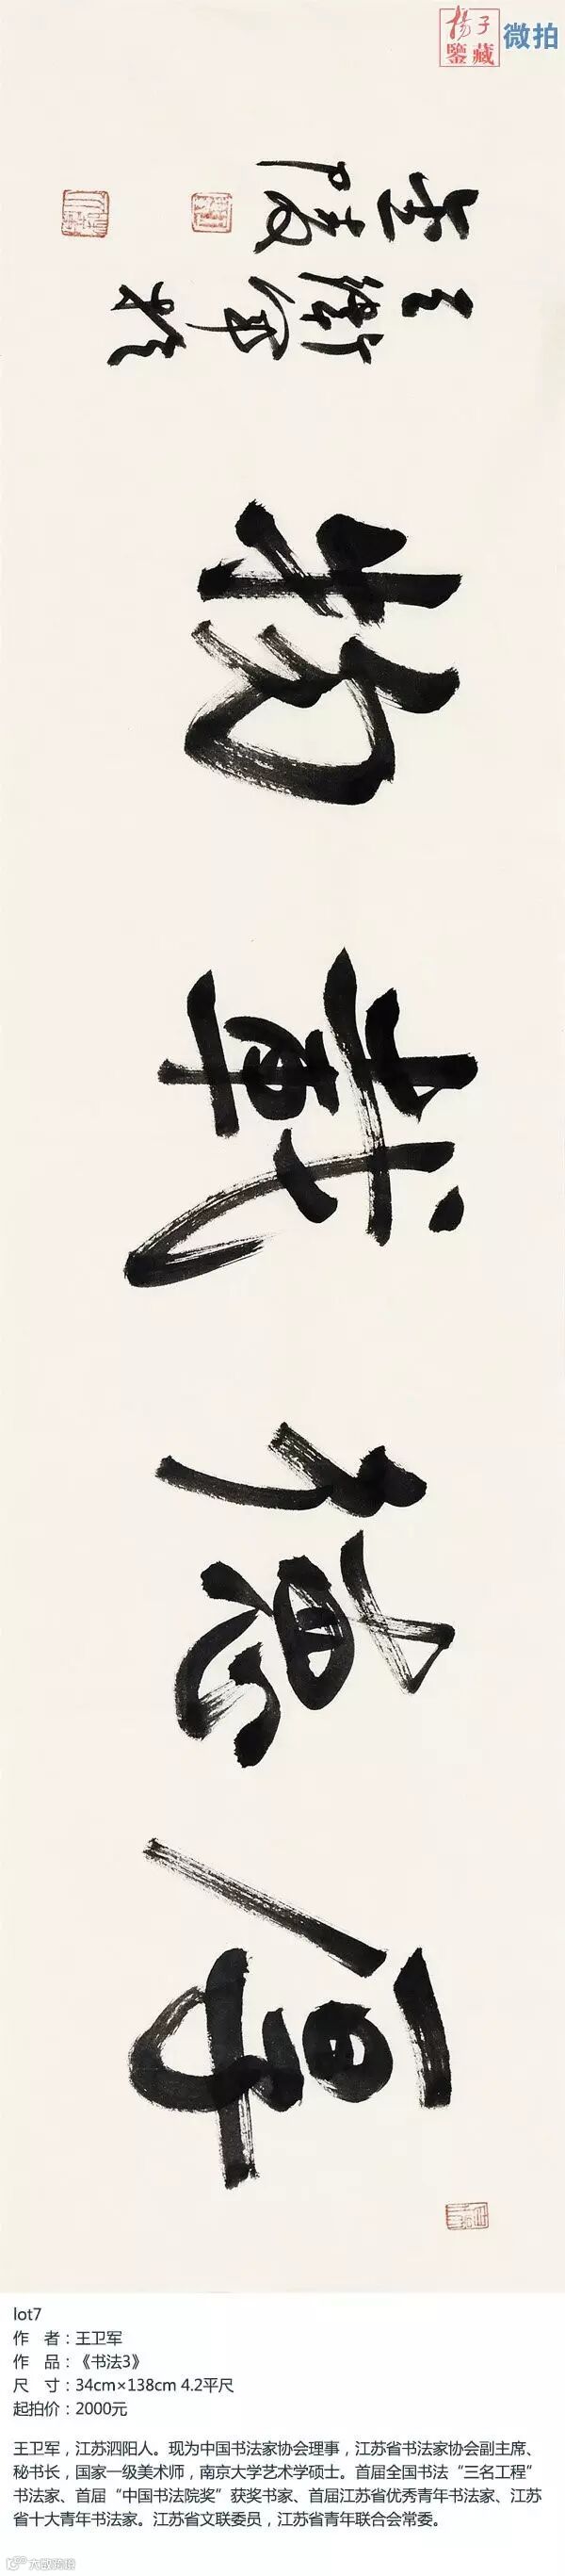 揚子
鑒藏
微拍
厚德載物
王衛軍於
金陵
lot7
作 者：王卫军
作 品：《书法3》
尺 寸：34cm×138cm 4.2平尺
起拍价：2000元
王卫军，江苏泗阳人。现为中国书法家协会理事，江苏省书法家协会副主席、
秘书长，国家一级美术师，南京大学艺术学硕士。首届全国书法“三名工程”
书法家、首届“中国书法院奖”获奖书家、首届江苏省优秀青年书法家、江苏
省十大青年书法家。江苏省文联委员，江苏省青年联合会常委。
大数跨境